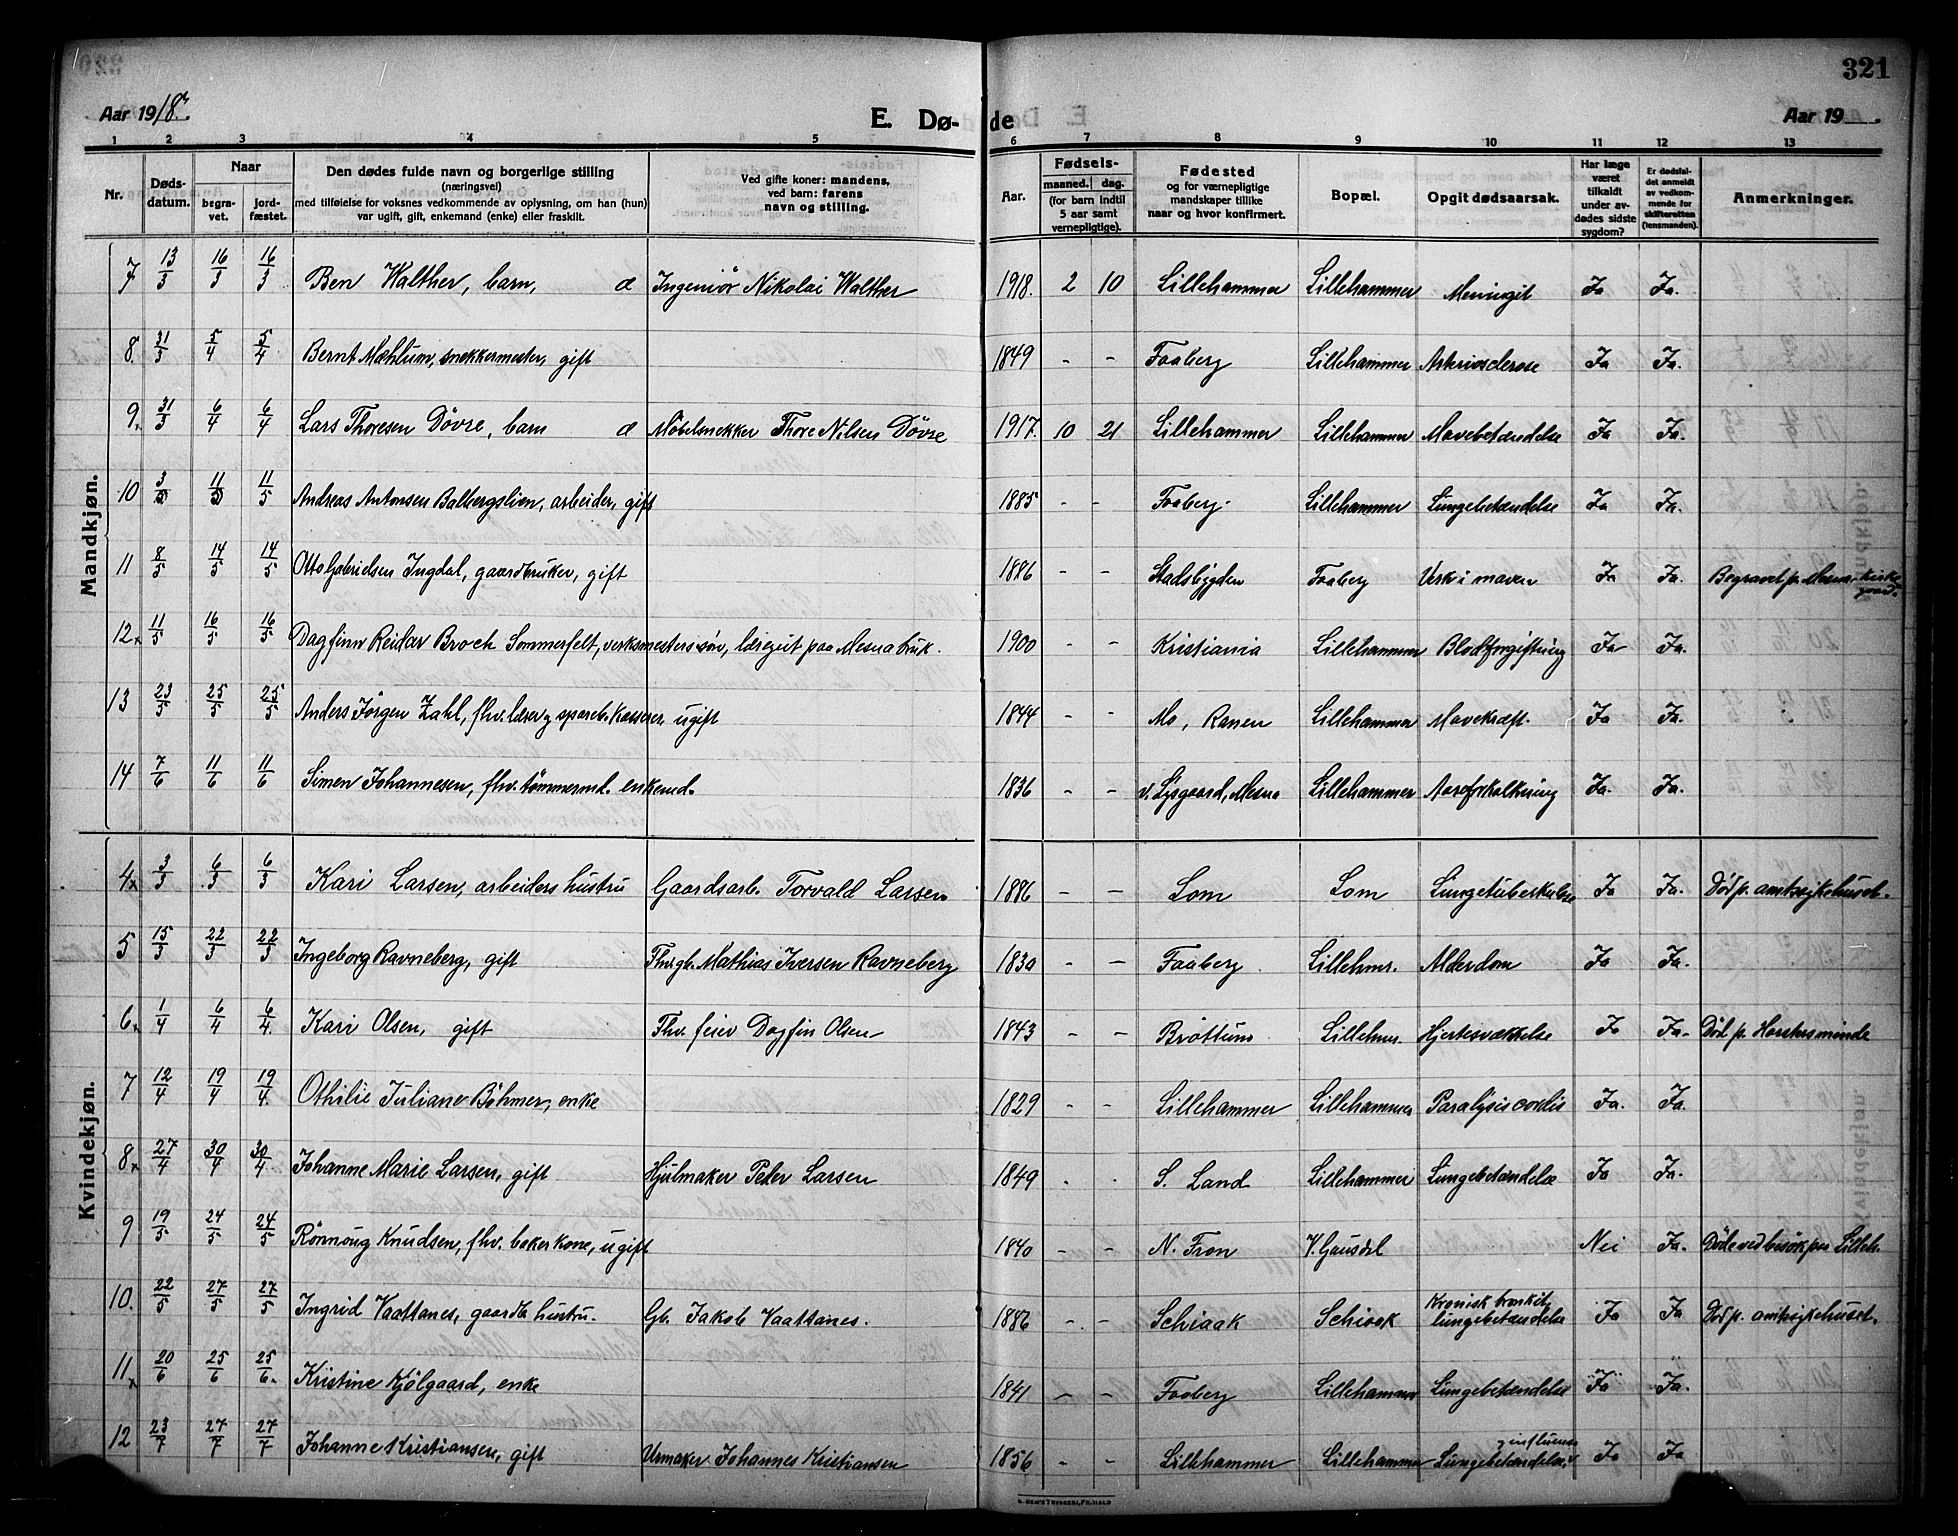 321
Aar 1918.
E. Dø-
de
Aar 19
1 2 3 4 5 6 7 8 9 10 11 12 13
Nr.
Døds-datum.
Naar
begra-vet.
jord-fæstet.
Den dødes fulde navn og borgerlige stilling
(næringsvei)
med tilføielse for voksnes vedkommende av oplysning, om han (hun)
var ugift, gift, enkemand (enke) eller fraskilt.
Ved gifte koner: mandens,
ved barn: farens
navn og stilling.
Aar.
Fødsels-
maaned. dag.
(for barn indtil
5 aar samt
vernepligtige).
Fødested
og for værnepligtige
mandskaper tillike
naar og hvor konfirmert.
Bopæl.
Opgit dødsaarsak.
Har læge
været
tilkaldt
under av-
dødes sidste
sygdom?
Er dødsfal-
det anmeldt
av vedkom-
mende for
skifteretten
(lensmanden).
Anmerkninger.
Mandkjøn.
7 13/3 16/3 16/3 Ben Walther, barn, d Ingeniör Nikolai Walther 1918. 2 10 Lillehammer Lillehammer Meningit Ja Ja.
8. 31/3 5/4 5/4 Bernt Mæhlum, snekkermester, gift 1849 - - Faaberg Lillehammer Arteriosclerose Ja Ja.
9. 31/3 6/4 6/4 Lars Thoresen Dövre, barn d Möbelsnekker Thore Nilsen Dövre 1917. 10 21 Lillehammer Lillehammer Mavebetændelse Ja Ja.
10 3/5 11/5 11/5 Andreas Antonsen Balbergslien, arbeider, gift 1885 - - Faaberg. Lillehammer Lungebetændelse Ja Ja.
11 8/5 14/5 14/5 Otto Gabrielsen Ingdal, gaardbruker, gift 1886 - - Stadsbygden Faaberg Verk i maven Ja Ja. Begravet p. Mesna-kirke
gaard.
12x 11/5 16/5 16/5 Dagfinn Reidar Broch Sommerfelt, verksmesters sön, læregut paa Mesna bruk. 1900 - - Kristiania Lillehammer Blodforgiftning Ja Ja.
13 23/5 25/5 25/5 Anders Jörgen Zahl, fhv. lærer og spareb. kasserer, ugift 1844 - - Mo, Ranen Lillehammer Mavekræft. Ja Ja.
14 7/6 11/6 11/6 Simen Johannesen, fhv. tömmermd. enkemd. 1836 - - v. Lysgaard, Mesna Lillehammer Aareforkalkning Ja. Ja.
Kvindekjøn.
4x 3/3 6/3 6/3 Kari Larsen, arbeiders hustru Gaardsarb. Torvald Larsen 1886 - - Lom Lom Lungetuberkulose Ja Ja. Död p. amtssykehuset.
5 15/3 22/3 22/3 Ingeborg Ravneberg, gift Fhv. gb. Mathias Iversen Ravneberg 1830 - - Faaberg Lillehmr. Alderdom Ja Ja.
6x 1/4 6/4 6/4. Kari Olsen, gift Fhv. feier Dagfin Olsen 1843 - - Bröttum Lillehmr. Hjertesvækkelse Ja Ja. Död p. Horstersminde
7 12/4 19/4 19/4. Othilie Juliane Böhmer, enke 1829 - - Lillehammer Lillehammer Paralysis cordis Ja. Ja.
8x 27/4 30/4 30/4. Johanne Marie Larsen, gift Hjulmaker Peter Larsen 1849 - - S. Land Lillehammer Lungebetændelse Ja Ja.
9 19/5 24/5 24/5 Rönnoug Knudsen, fhv. bakerkone, ugift 1840 - - N. Fron V. Gausdal Nei Ja. Döde ved besök paa Lilleh.
10. 22/5 27/5 27/5 Ingrid Vaattanes, gaardb. hustru. Gb. Jakob Vaattanes. 1886 - - Schiaak Schiaak Kronisk bronkit,
lungebetændelse Ja Ja Död p. amtssykehuset.
11x 20/6 25/6 25/6. Kristine Kjölgaard, enke 1841 - - Faaberg Lillehammer Lungebetændelse Ja Ja.
12 23/7 27/7 27/7 Johanne Kristiansen, gift Urmaker Johannes Kristiansen 1856 - - Lillehammer Lillehammer Lungebetændelse
og influensa Ja Ja